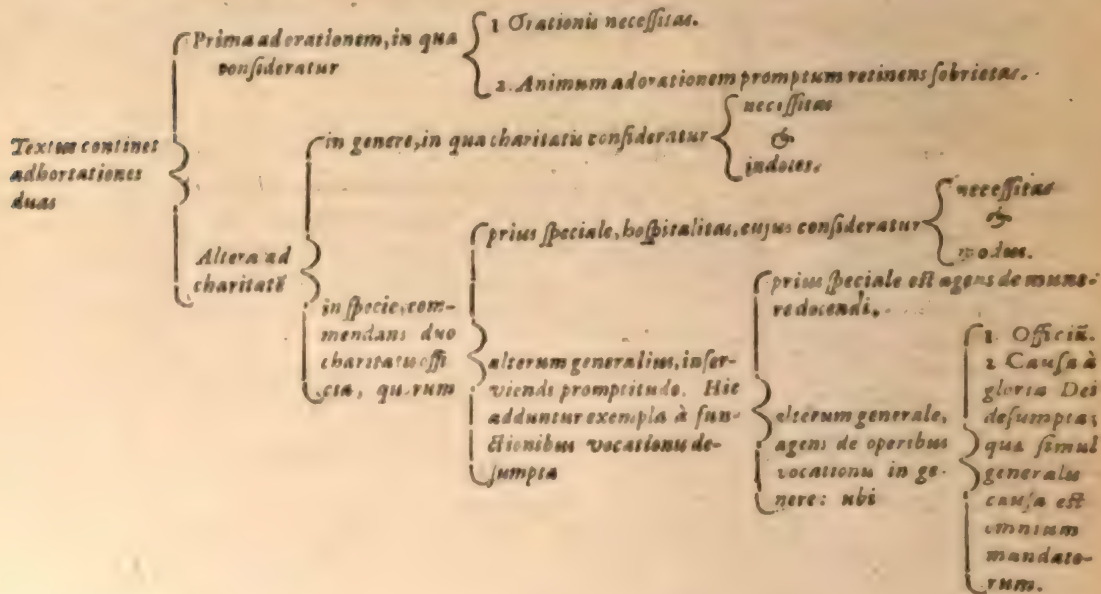 Textus continet
adhortationes
duas
Prima ad orationem, in qua
consideratur
1 Orationis necessitas.
2. Animum ad orationem promptum retinens sobrietas.
Altera ad
charitatē
in genere, in qua charitatis consideratur
necessitas
&
indoles.
in specie, com-
mendans duo
charitatis offi-
cia, quorum
prius speciale, hospitalitas, cujus consideratur
necessitas
&
modus.
alterum generalius, inser-
viendi promptitudo. Hic
adduntur exempla à fun-
ctionibus vocationis de-
sumpta
prius speciale est agens de mune-
re docendi.
alterum generale,
agens de operibus
vocationis in ge-
nere: ubi
1. Officiū.
2 Causa à
gloria Dei
desumpta;
qua simul
generalis
causa est
omnium
mandato-
rum.